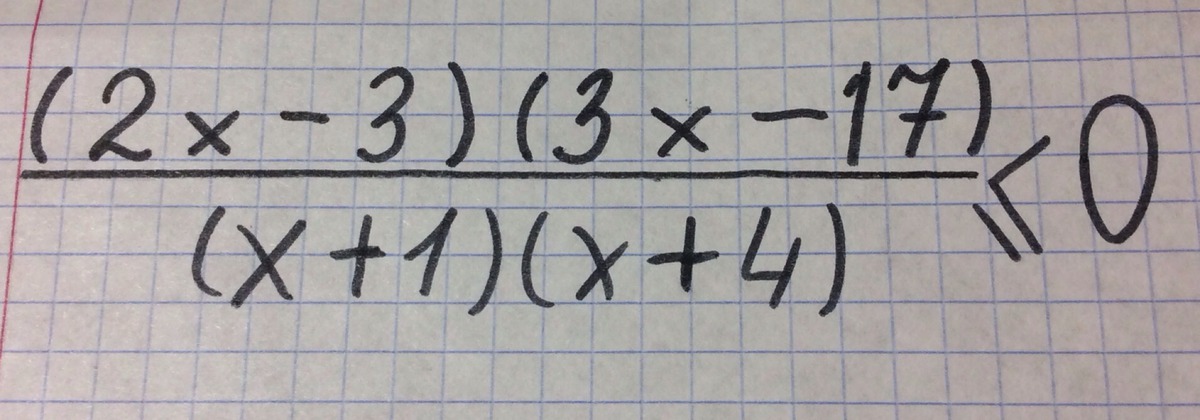 (2x - 3)(3x - 17)
(x + 1)(x + 4)
⩽ 0